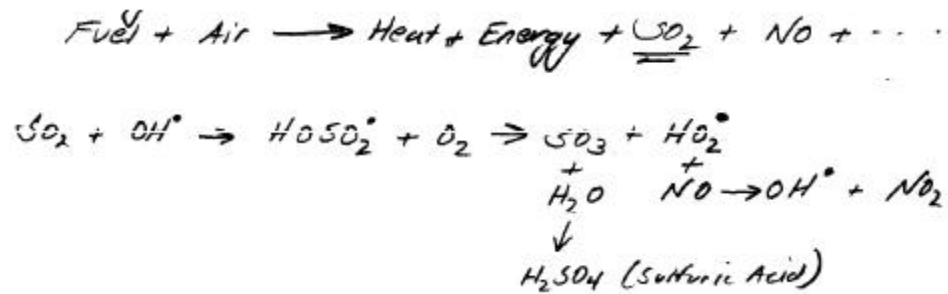 Fuel + Air → Heat + Energy + SO₂ + NO + ....
SO₂ + OH• → HOSO₂• + O₂ → SO₃ + HO₂•
+ +
H₂O NO → OH• + NO₂
↓
H₂SO₄ (Sulfuric Acid)